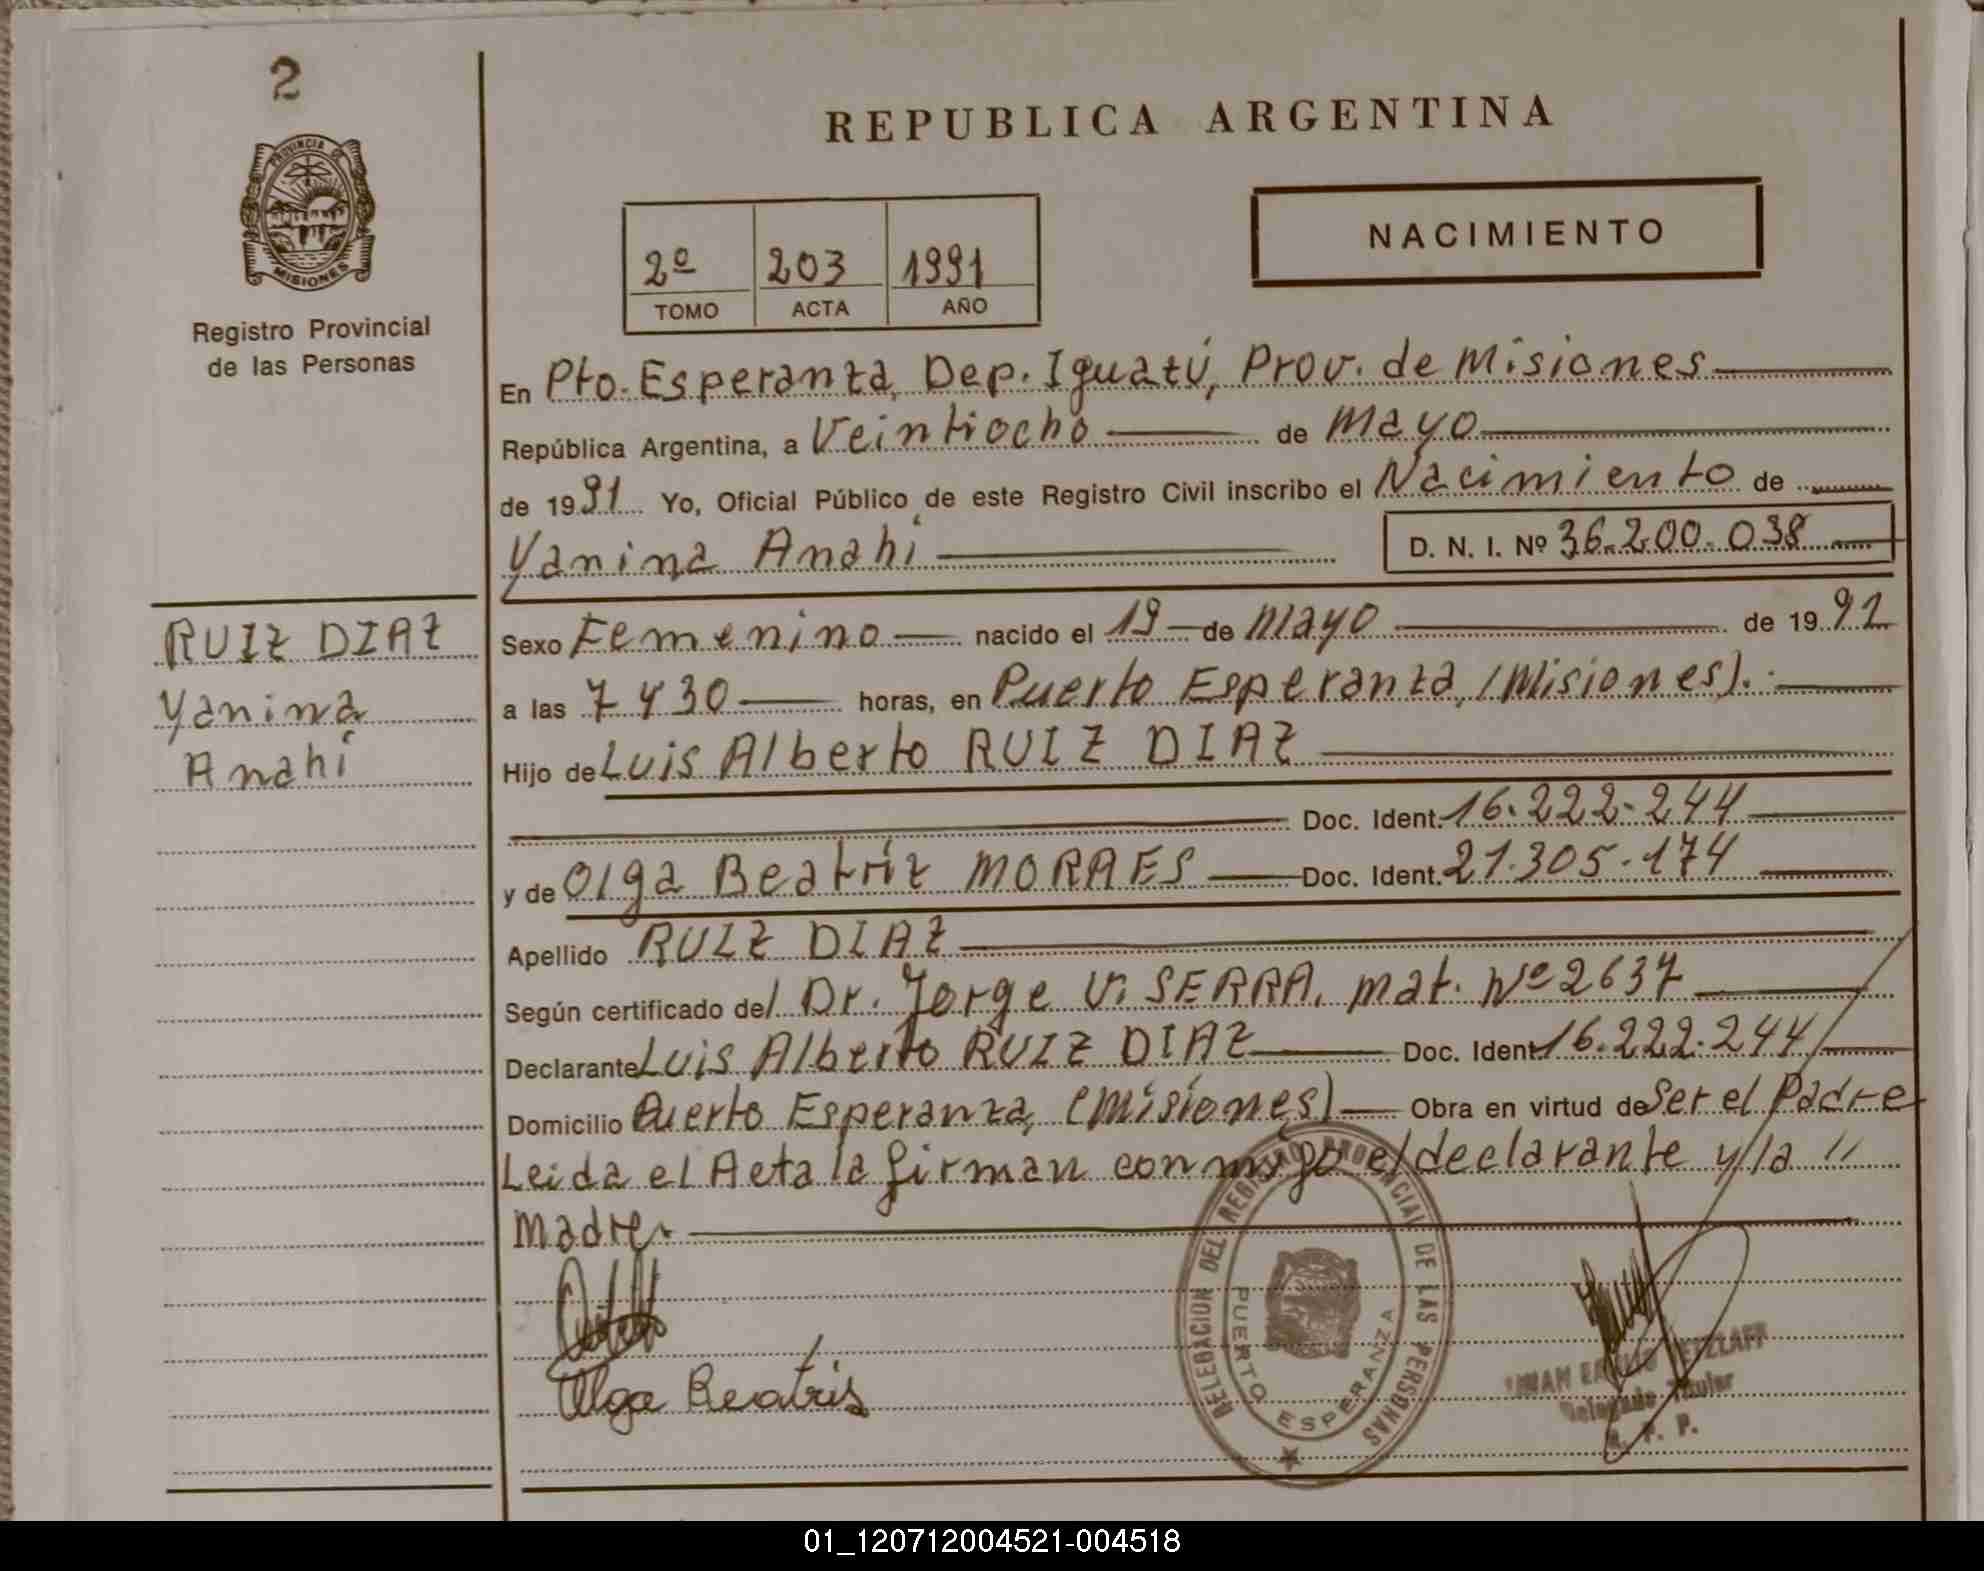 2
REPUBLICA ARGENTINA
PROVINCIA DE
MISIONES
Registro Provincial
de las Personas
NACIMIENTO
2º 203 1991
TOMO ACTA AÑO
En Pto. Esperanza, Dep. Iguazú, Prov. de Misiones
República Argentina, a Veintiocho de Mayo
de 1991 Yo, Oficial Público de este Registro Civil inscribo el Nacimiento de
Yanina Anahí D. N. I. Nº 36.200.038
RUIZ DIAZ
Yanina
Anahí
Sexo Femenino nacido el 19 de Mayo de 1991
a las 7 y 30 horas, en Puerto Esperanza, (Misiones).
Hijo de Luis Alberto RUIZ DIAZ
Doc. Ident. 16.222.244
y de Olga Beatriz MORAES Doc. Ident. 21.305.174
Apellido RUIZ DIAZ
Según certificado del Dr. Jorge V. SERRA, mat. Nº 2637
Declarante Luis Alberto RUIZ DIAZ Doc. Ident 16.222.244
Domicilio Puerto Esperanza, (Misiones) Obra en virtud de Ser el Padre
Leida el Acta la firman conmigo el declarante y la "
Madre.
Olga Beatris
DELEGACION DEL REGISTRO PROVINCIAL DE LAS PERSONAS
PUERTO ESPERANZA
Delegado Titular
R. P. P.
01_120712004521-004518